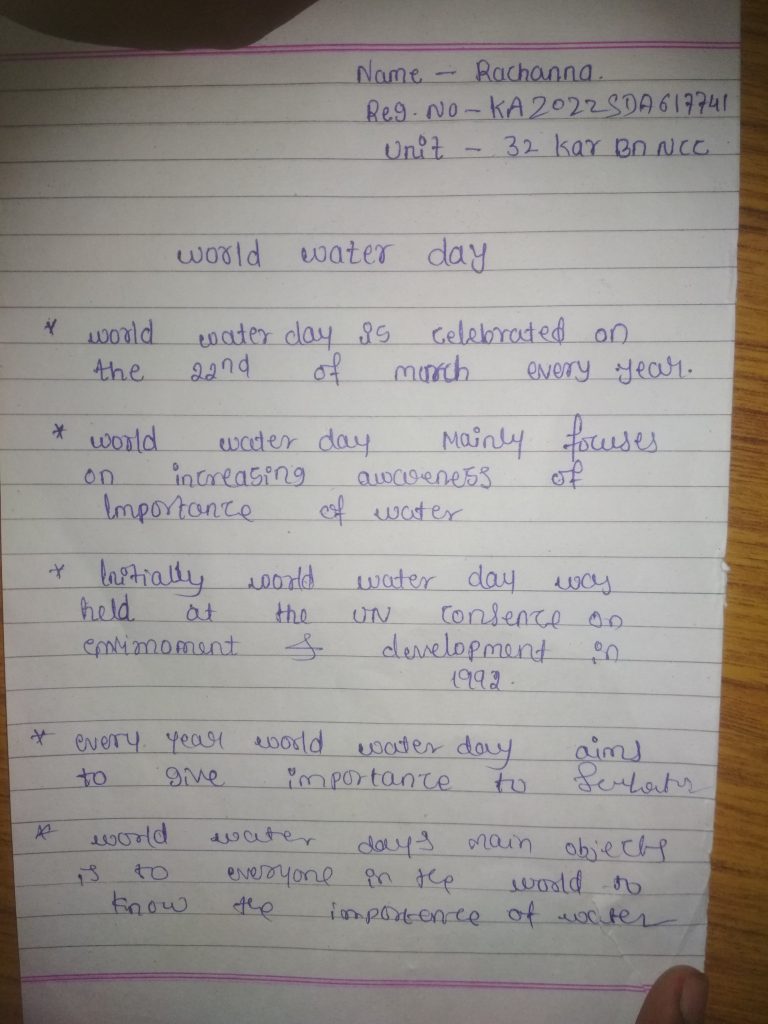 Name - Rachanna.
Reg. No - KA2022SDA617741
Unit - 32 Kar Bn NCC
world water day
* world water day is celebrated on
the 22nd of march every year.
* world water day Mainly focuses
on increasing awareness of
Importance of water
* Initially world water day was
held at the UN consence on
envimoment & development in
1992.
* every year world water day aims
to give importance to
* world water day's main objects
is to everyone in the world to
know the importence of water